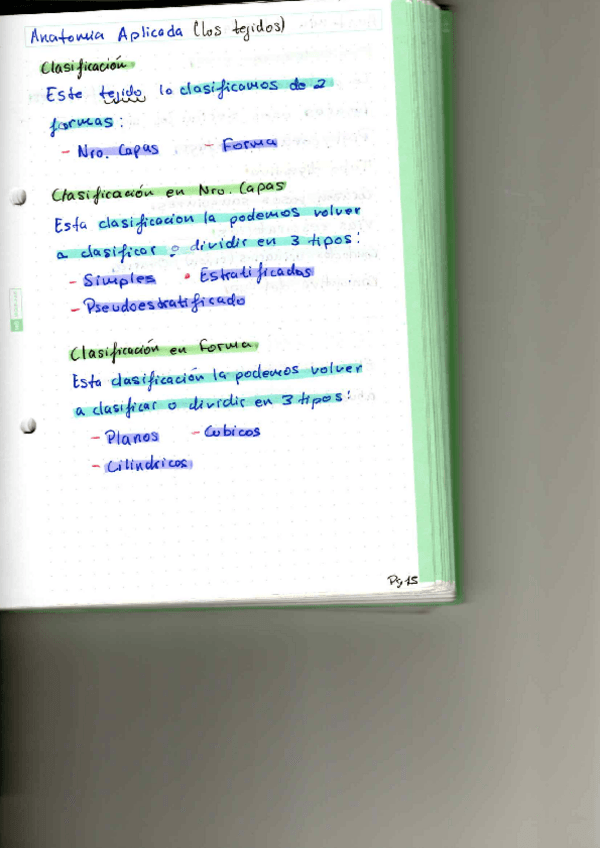 Anatomia Aplicada (los tejidos)
Clasificación
Este tejido lo clasificamos de 2
formas:
- Nro. Capas - Forma
Clasificación en Nro. Capas
Esta clasificacion la podemos volver
a clasificar o dividir en 3 tipos:
- Simples • Estratificados
- Pseudoestratificado
Clasificación en Forma
Esta clasificación la podemos volver
a clasificar o dividir en 3 tipos:
- Planos - Cubicos
- Cilindricos
Pg 15